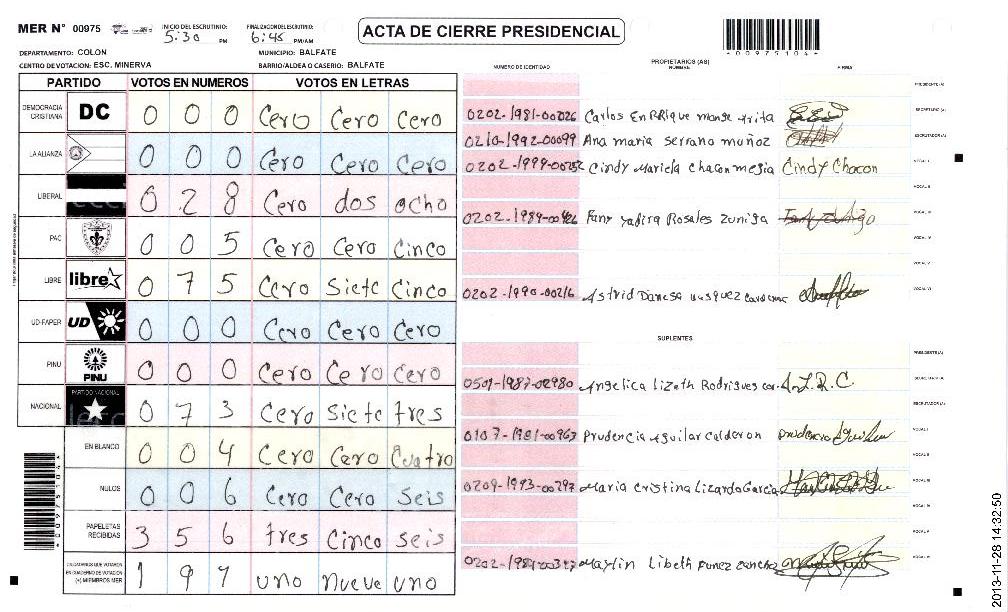 MER N° 00975 INICIO DEL ESCRUTINIO: 5:30 PM FINALIZACION DEL ESCRUTINIO: 6:45 PM/AM
ACTA DE CIERRE PRESIDENCIAL
*00975104*
DEPARTAMENTO: COLON MUNICIPIO: BALFATE
CENTRO DE VOTACION: ESC. MINERVA BARRIO/ALDEA O CASERIO: BALFATE
PARTIDO VOTOS EN NUMEROS VOTOS EN LETRAS
DEMOCRACIA CRISTIANA DC 0 0 0 Cero Cero Cero
LA ALIANZA 0 0 0 Cero Cero Cero
LIBERAL 0 2 8 Cero dos ocho
PAC 0 0 5 Cero Cero Cinco
LIBRE libre 0 7 5 Cero Siete Cinco
UD-FAPER UD 0 0 0 Cero Cero Cero
PINU PINU 0 0 0 Cero Cero Cero
NACIONAL PARTIDO NACIONAL 0 7 3 Cero Siete tres
EN BLANCO 0 0 4 Cero Cero Cuatro
NULOS 0 0 6 Cero Cero Seis
PAPELETAS RECIBIDAS 3 5 6 tres Cinco seis
CIUDADANOS QUE VOTARON EN CUADERNO DE VOTACION (+) MIEMBROS MER 1 9 1 uno nueve uno
*00975104*
PROPIETARIOS (AS)
NUMERO DE IDENTIDAD NOMBRE FIRMA
PRESIDENTE (A)
0202-1981-00226 Carlos Enrrique SECRETARIO (A)
0210-1992-00099 Ana maria serrano muñoz ESCRUTADOR (A)
0202-1999- Cindy Mariela chacon mejia Cindy Chacon VOCAL I
VOCAL II
0202-1989- Fany yadira Rosales zuniga VOCAL III
VOCAL IV
VOCAL V
0202-1990-00216 Astrid Danesa vasquez VOCAL VI
SUPLENTES
PRESIDENTE (A)
0501-1987-02980 Angelica Lizeth Rodrigues A.L.R.C. SECRETARIO (A)
ESCRUTADOR (A)
0107-1981-00963 Prudencia Aguilar calderon VOCAL I
VOCAL II
0209-1993-00297 Maria Cristina Lizardo Garcia VOCAL III
VOCAL IV
VOCAL V
Maylin Libeth punez VOCAL VI
2013-11-28 14:32:50